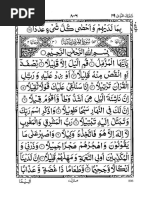 ٨٠٦
بِمَا لَدَيْهِمْ وَاَحْصٰى كُلَّ شَيْءٍ عَدَدًا
بِسْمِ اللّٰهِ الرَّحْمٰنِ الرَّحِيْمِ
يٰٓاَيُّهَا الْمُزَّمِّلُ قُمِ الَّيْلَ اِلَّا قَلِيْلًا نِّصْفَهٗٓ
اَوِ انْقُصْ مِنْهُ قَلِيْلًا اَوْ زِدْ عَلَيْهِ وَ رَتِّلِ
الْقُرْاٰنَ تَرْتِيْلًا اِنَّا سَنُلْقِيْ عَلَيْكَ قَوْلًا ثَقِيْلًا
اِنَّ نَاشِئَةَ الَّيْلِ هِيَ اَشَدُّ وَطْاً وَّ اَقْوَمُ قِيْلًا
اِنَّ لَكَ فِي النَّهَارِ سَبْحًا طَوِيْلًا وَاذْكُرِ اسْمَ رَبِّكَ
وَتَبَتَّلْ اِلَيْهِ تَبْتِيْلًا رَبُّ الْمَشْرِقِ وَالْمَغْرِبِ
لَآ اِلٰهَ اِلَّا هُوَ فَاتَّخِذْهُ وَكِيْلًا وَاصْبِرْ عَلٰى مَا يَقُوْلُوْنَ
وَاهْجُرْهُمْ هَجْرًا جَمِيْلًا وَذَرْنِيْ وَالْمُكَذِّبِيْنَ اُولِي
النَّعْمَةِ وَمَهِّلْهُمْ قَلِيْلًا اِنَّ لَدَيْنَآ اَنْكَالًا وَّجَحِيْمًا
وَّطَعَامًا ذَا غُصَّةٍ وَّعَذَابًا اَلِيْمًا يَوْمَ تَرْجُفُ الْاَرْضُ